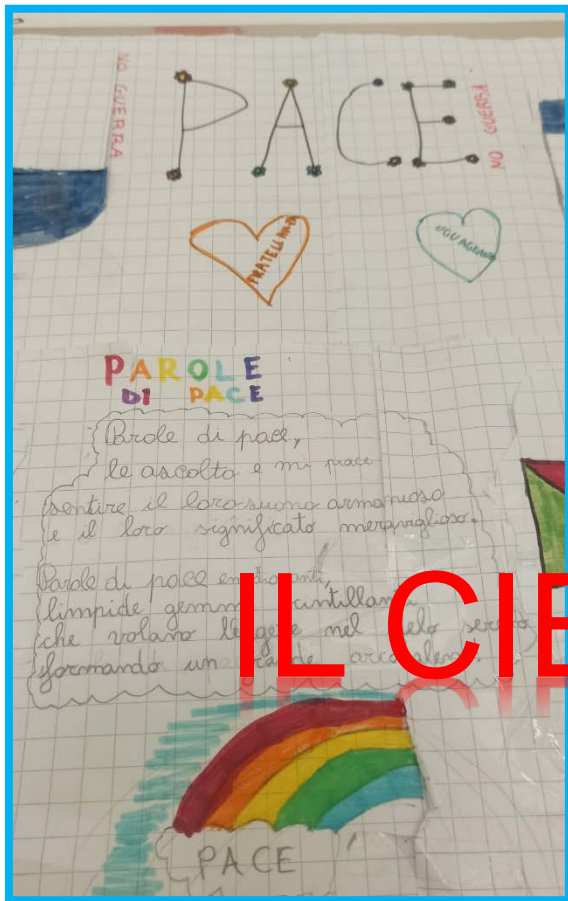 NO GUERRA
PACE
NO GUERRA
FRATELLANZA
PAROLE
DI PACE
Parole di pace,
le ascolto e mi piace
sentire il loro suono armonioso
e il loro significato meraviglioso.
Parole di pace
limpide gemme scintillanti
che volano leggere nel cielo sereno
formando un grande arcobaleno.
IL CIE
PACE